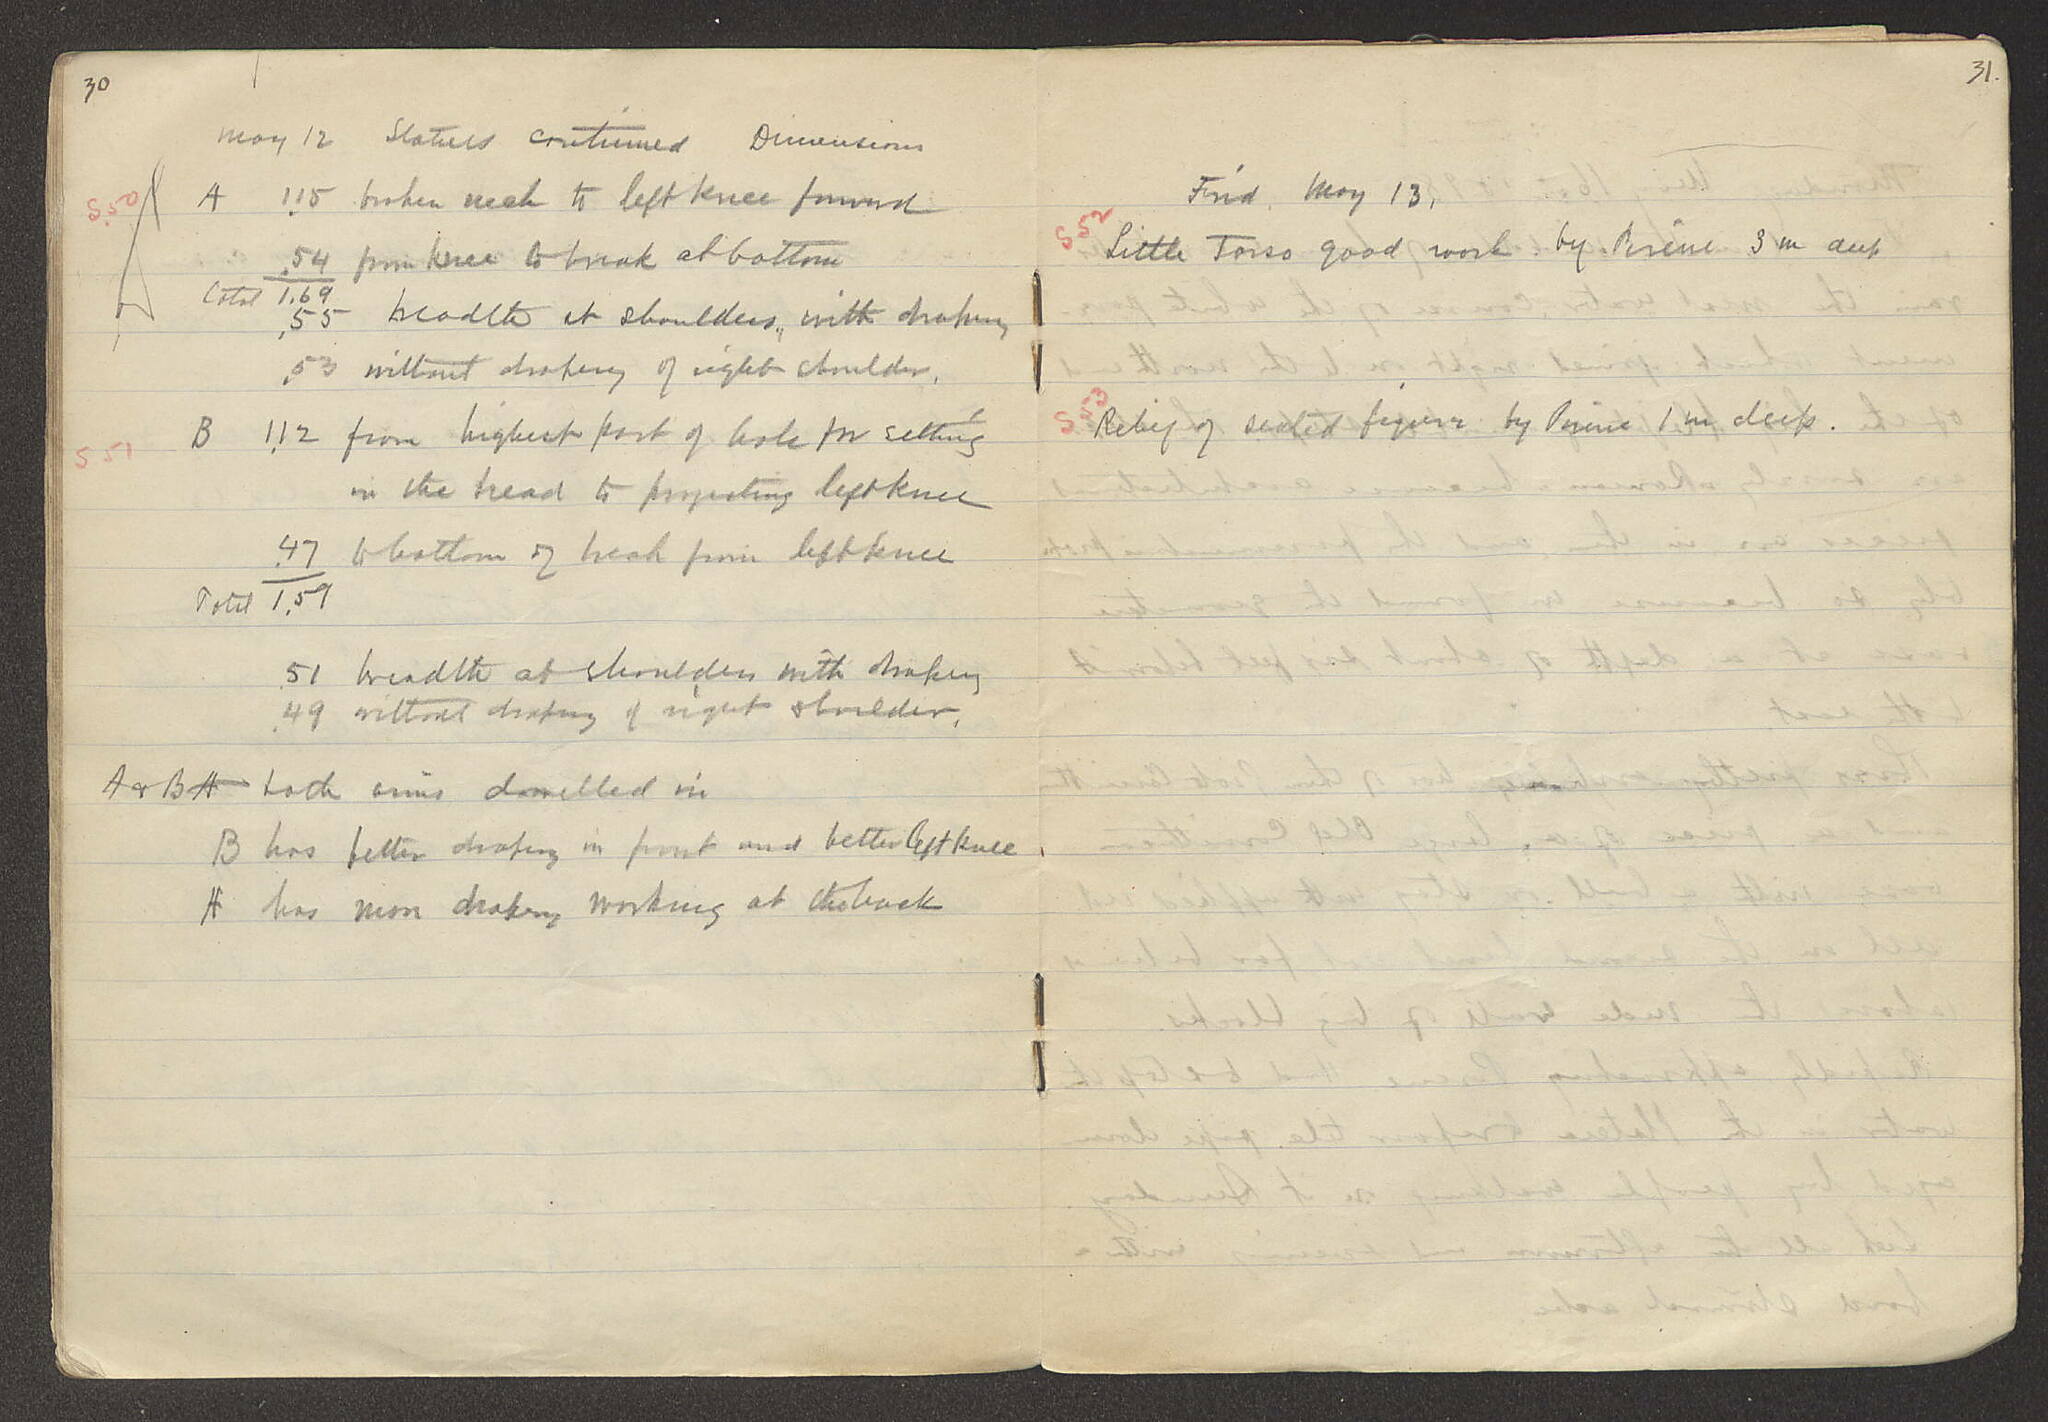 30
May 12 Statues continued Dimensions
S 50 A 1.15 broken neck to left knee forward
.54 from knee to break at bottom
Total 1.69
.55 breadth at shoulders, with drapery
.53 without drapery of right shoulder.
S 51 B 1.12 from highest part of hole for setting
in the head to projecting left knee
.47 to bottom of break from left knee
Total 1.59
.51 breadth at shoulders with drapery
.49 without drapery of right shoulder.
A & B A both arms dowelled in
B has better drapery in front and better left knee
A has more drapery working at the back
31.
Frid. May 13.
S 52 Little Torso good work by Pirene 3 m deep
S 53 Relief of seated figure by Pirene 1 m deep.